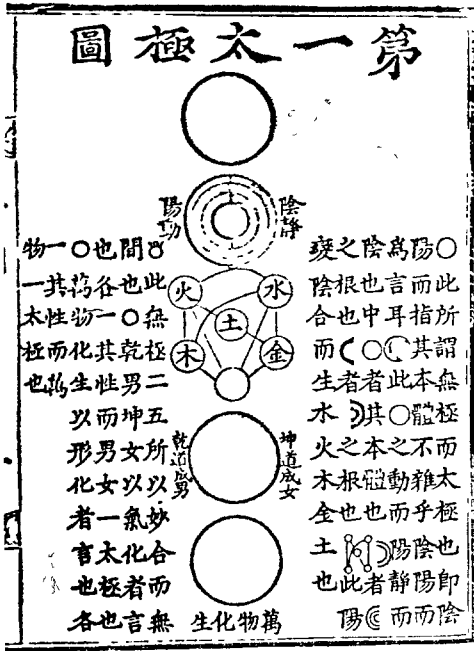 第一太極圖
陰靜
陽動
水
火
土
金
木
坤道成女
乾道成男
萬物化生
○此所謂無極而太極也即陰
陽而指其本體不雜乎陰陽而
爲言耳此○之動而陽靜而
陰也中○者其本體也者
之根也者之根也此陽
變陰合而生水火木金土也
此無極二五所以妙合而無
間也○乾男坤女以氣化者言
也各一其性而男女一太極也
○萬物化生以形化者言也各
一其性而萬
物一太極也